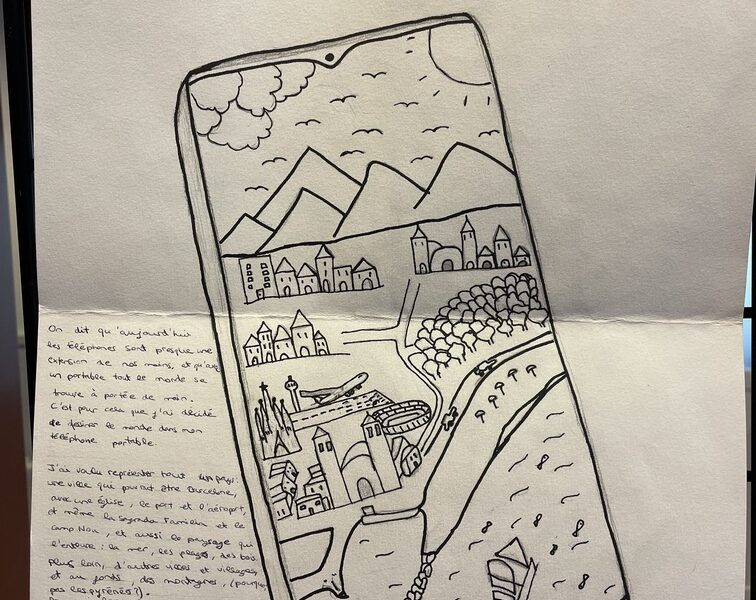 On dit qu'aujourd'hui
les téléphones sont presque une
extension de nos mains, et qu'avec
un portable tout le monde se
trouve à portée de main.
C'est pour cela que j'ai décidé
de dessiner le monde dans mon
téléphone portable.
J'ai voulu représenter tout un pays:
une ville qui pourrait être Barcelone,
avec une église, le port et l'aéroport,
et même la Sagrada Familia et le
Camp Nou, et aussi le paysage qui
l'entoure: la mer, les plages, des bois
plus loin, d'autres villes et villages,
et au fond, des montagnes, (pourquoi
pas les pyrénées?).